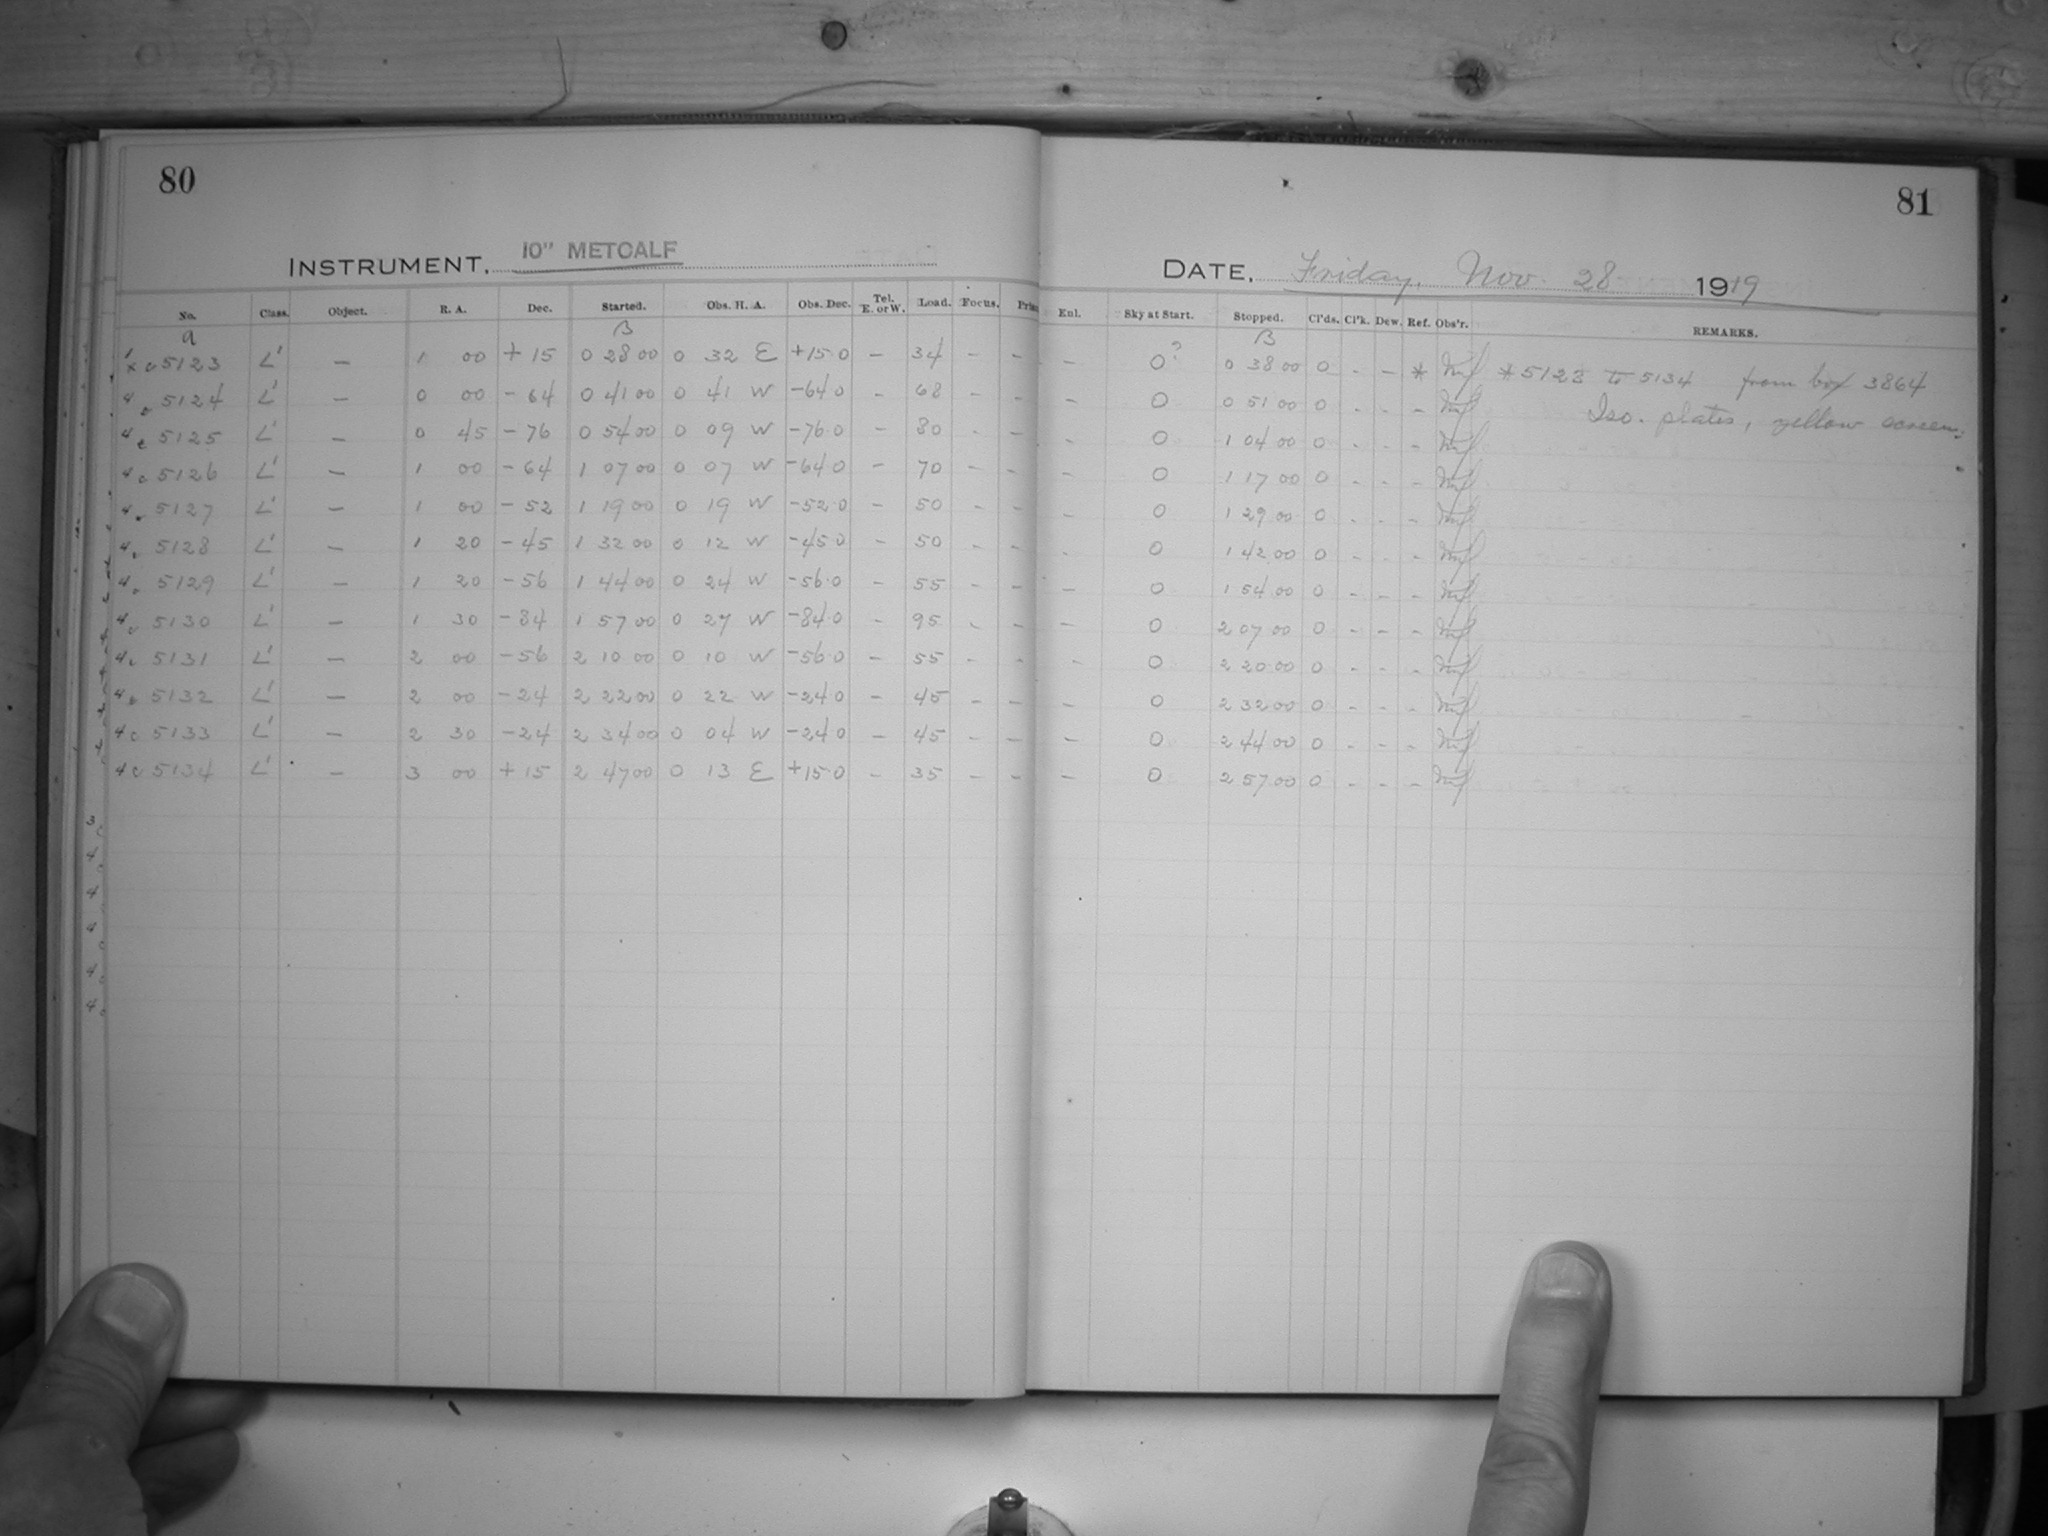 80
INSTRUMENT. 10" METCALF
No. Class. Object. R. A. Dec. Started. Obs. H. A. Obs. Dec. Tel. E. or W. Load. Focus.
a B
5123 L' — 1 00 + 15 0 28 00 0 32 E +15.0 — 34 - -
5124 L' — 0 00 - 64 0 41 00 0 41 W -64.0 - 68 - -
5125 L' — 0 45 - 76 0 54 00 0 09 W -76.0 - 80 - -
5126 L' — 1 00 - 64 1 07 00 0 07 W -64.0 - 70 - -
5127 L' — 1 00 - 52 1 19 00 0 19 W -52.0 - 50 - -
5128 L' — 1 20 - 45 1 32 00 0 12 W -45.0 - 50 - -
5129 L' — 1 20 - 56 1 44 00 0 24 W -56.0 - 55 - -
5130 L' — 1 30 - 84 1 57 00 0 27 W -84.0 - 95 - -
5131 L' — 2 00 - 56 2 10 00 0 10 W -56.0 - 55 - -
5132 L' — 2 00 - 24 2 22 00 0 22 W -24.0 - 45 - -
5133 L' — 2 30 - 24 2 34 00 0 04 W -24.0 - 45 - -
5134 L' — 3 00 + 15 2 47 00 0 13 E +15.0 - 35 - -
81
DATE, Friday, Nov. 28 1919
Enl. Sky at Start. Stopped. Cl'ds. Cl'k. Dew. Ref. Obs'r. REMARKS.
B
- 0? 0 38 00 0 - - * * 5123 to 5134 from box 3864
- 0 0 51 00 0 - - - Iso. plates, yellow screen.
- 0 1 04 00 0 - - -
- 0 1 17 00 0 - - -
- 0 1 29 00 0 - - -
- 0 1 42 00 0 - - -
- 0 1 54 00 0 - - -
- 0 2 07 00 0 - - -
- 0 2 20 00 0 - - -
- 0 2 32 00 0 - - -
- 0 2 44 00 0 - - -
- 0 2 57 00 0 - - -